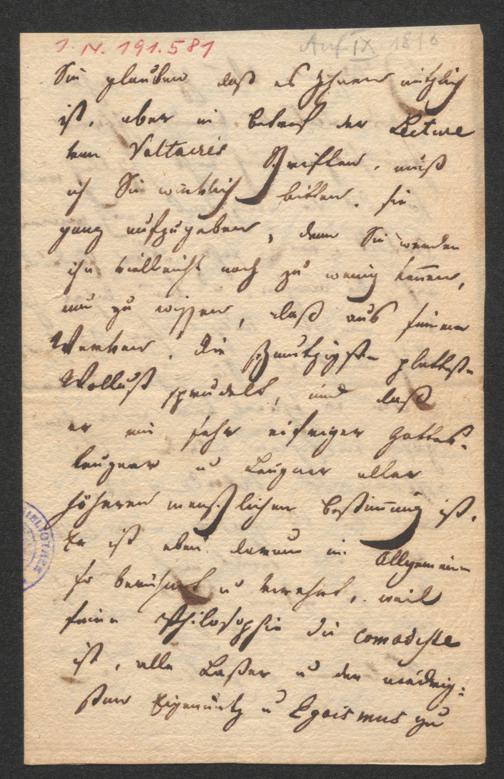 I. N. 191.581 Anf IX 1816
Sie glauben daß es Ihnen nützlich
ist, aber in betreff der Lecture
von Voltaires Schriften, muß
ich Sie wirklich bitten, sie
ganz aufzugeben, denn Sie werden
ihn vielleicht noch zu wenig kennen,
um zu wissen, daß aus seinen
Werken, die schmutzigste platteste
Wollust sprudelt, und daß
er ein sehr eifriger Gottes-
läugner u Läugner aller
höheren menschlichen Bestimmung ist.
Er ist eben darum im Allgemeinen
so berühmt u verehrt, weil
seine Philosophie die comodeste
ist, alle Laster u den niedrig-
sten Eigennutz u Egoismus zu